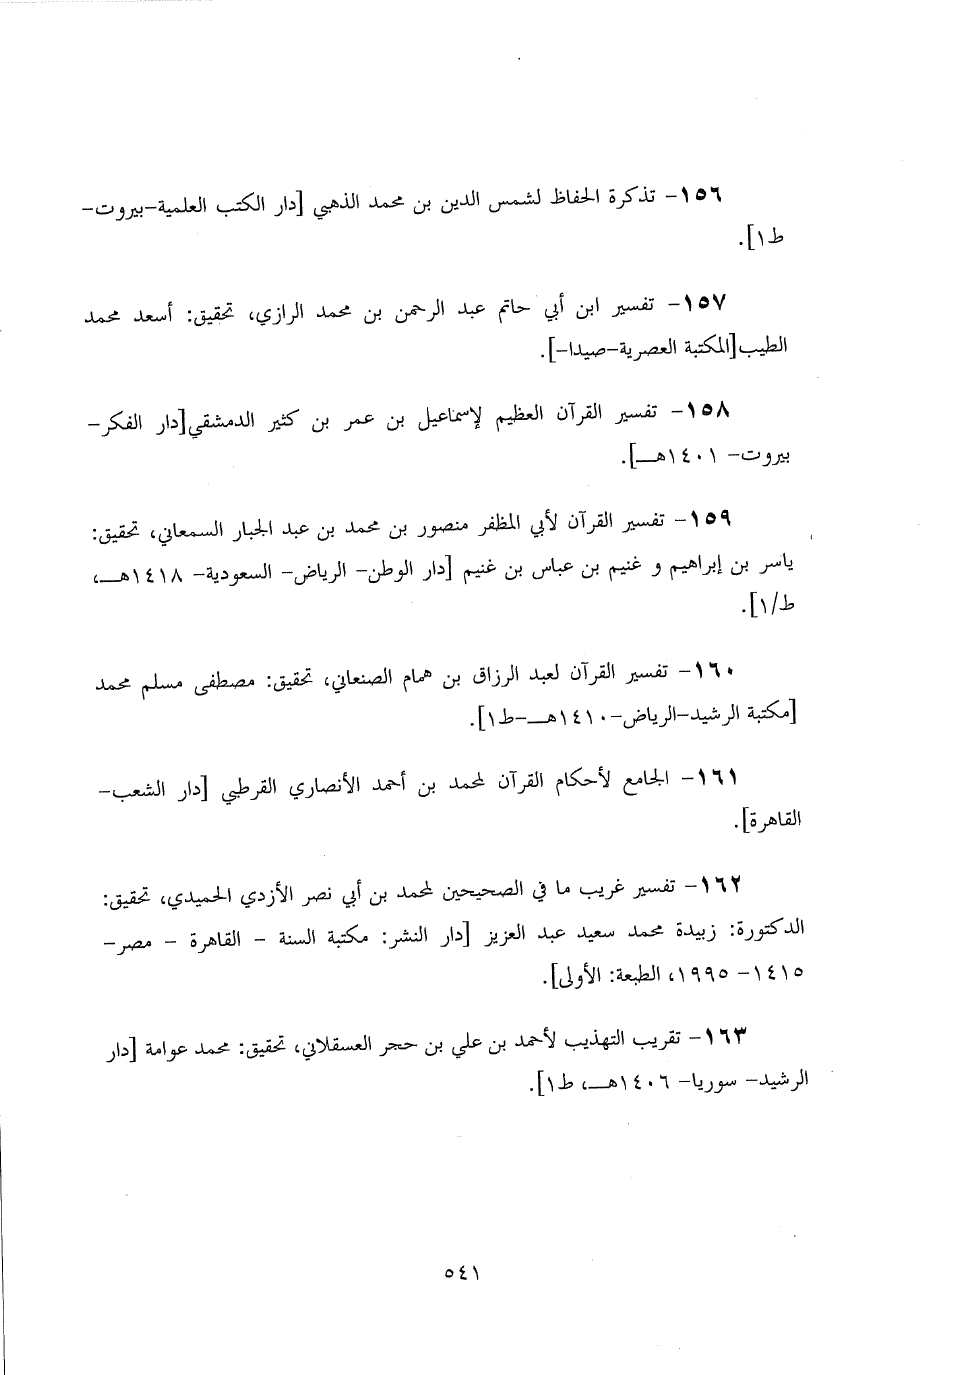 ١٥٦- تذكرة الحفاظ لشمس الدين بن محمد الذهبي [دار الكتب العلمية-بيروت-
ط١].
١٥٧- تفسير ابن أبي حاتم عبد الرحمن بن محمد الرازي، تحقيق: أسعد محمد
الطيب[المكتبة العصرية-صيدا-].
١٥٨- تفسير القرآن العظيم لإسماعيل بن عمر بن كثير الدمشقي[دار الفكر-
بيروت- ١٤٠١هـــ].
١٥٩- تفسير القرآن لأبي المظفر منصور بن محمد بن عبد الجبار السمعاني، تحقيق:
ياسر بن إبراهيم و غنيم بن عباس بن غنيم [دار الوطن- الرياض- السعودية- ١٤١٨هـــ،
ط/١].
١٦٠- تفسير القرآن لعبد الرزاق بن همام الصنعاني، تحقيق: مصطفى مسلم محمد
[مكتبة الرشيد-الرياض-١٤١٠هـــ-ط١].
١٦١- الجامع لأحكام القرآن لمحمد بن أحمد الأنصاري القرطبي [دار الشعب-
القاهرة].
١٦٢- تفسير غريب ما في الصحيحين لمحمد بن أبي نصر الأزدي الحميدي، تحقيق:
الدكتورة: زبيدة محمد سعيد عبد العزيز [دار النشر: مكتبة السنة - القاهرة - مصر-
١٤١٥- ١٩٩٥، الطبعة: الأولى].
١٦٣- تقريب التهذيب لأحمد بن علي بن حجر العسقلاني، تحقيق: محمد عوامة [دار
الرشيد- سوريا- ١٤٠٦هـــ، ط١].
٥٤١